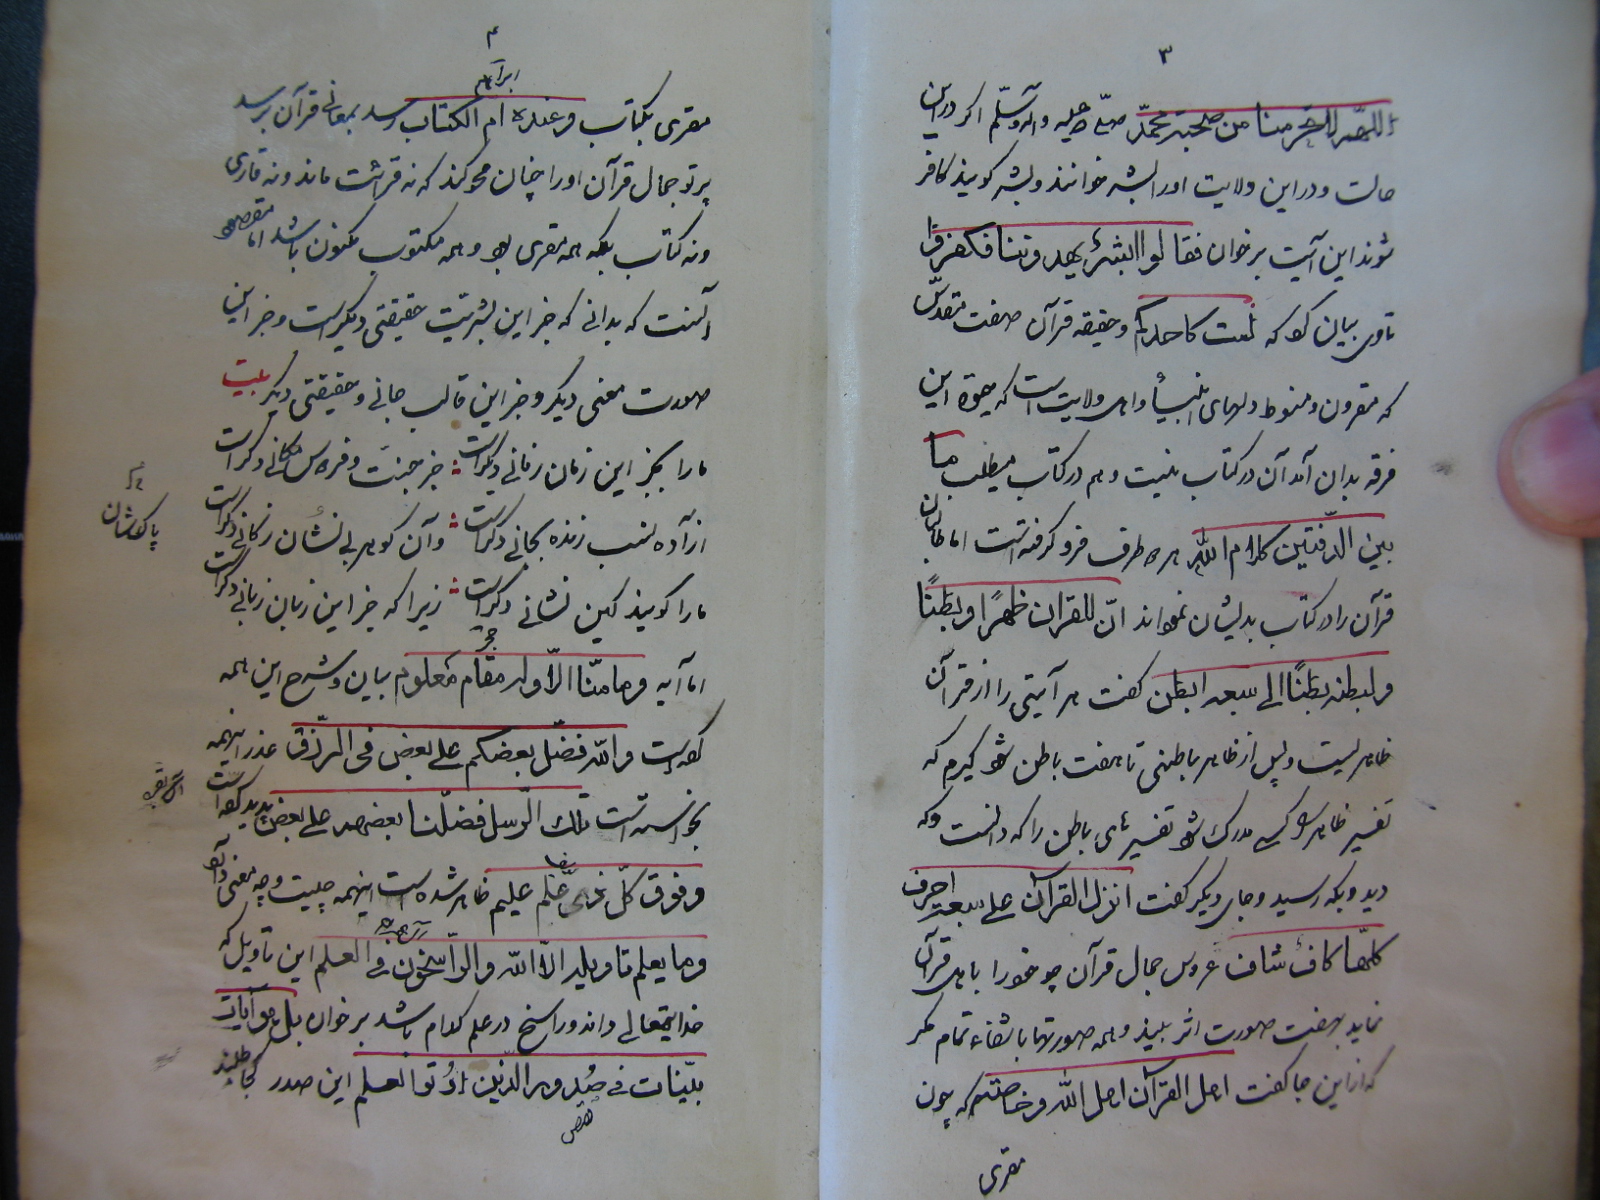 ٣
اللهم لا تحرمنا من صحبة محمد صلی الله علیه و آله وسلم اگر در این
حالت و در این ولایت او را بشر خوانند و بشر گویند کافر
شوند این آیت برخوان فقالوا ابشر یهدوننا فکفروا
تا وی بیان کرد که لست کاحدکم و حقیقه قرآن صفت مقدس
که مقرون و منوط دلهای انبیا و اهل ولایت است که حیوة این
فرقه بدان آمد آن در کتاب نیست و هم در کتاب میطلب ما
بین الدفتین کلام الله هر دو طرف فرو گرفته است اما طالبان
قرآن را در کتاب بدیشان نمود اند ان للقرآن ظهرا و بطنا
و لبطنه بطنا الی سبعه ابطن گفت هر آیتی را از قرآن
ظاهریست و پس از ظاهر باطنی تا هفت باطن شو گیرم که
تفسیر ظاهر را کسی مدرک شود تفسیرهای باطن را که دانست و که
دید و بکه رسید و جای دیگر گفت انزل القرآن علی سبعة احرف
کلها کاف شاف عروس جمال قرآن چو خود را باهل قرآن
نماید بهفت صورت اثر بیند و همه صورتها با شفاء تمام مگر
که از این جا گفت اهل القرآن اهل الله و خاصته که چون
مقری
۴
ابراهیم
مقری بکتاب و عنده ام الکتاب رسد بمعانی قرآن برسد
پرتو جمال قرآن او را چنان محو کند که نه قرائت ماند و نه قاری
و نه کتاب بلکه همه مقری بود و همه مکتوب مکنون باشد اما مقصود
آنست که بدانی که جز این بشریت حقیقتی دیگر است و جز این
صورت معنی دیگر و جز این قالب جانی و حقیقتی دیگر بیت
ما را بجز این زمان زمانی دگر است جز جنت و فردوس مکانی دگر است
آزاده نسب زنده بجانی دگر است و آن گوهر بی نشان ز کانی دگر است
پاکشان
ما را گویند کین نشانی دگر است زیرا که جز این زبان زبانی دگر است
اما آیه و ما منا الا وله مقام معلوم بیان و شرح این همه
کرده است والله فضل بعضکم علی بعض فی الرزق عذر اینهمه
بخواسته است تلک الرسل فضلنا بعضهم علی بعض پدید کرده است
و فوق کل ذی علم علیم ظاهر شده است اینهمه چیست و چه معنی دارد
و ما یعلم تاویله الا الله والراسخون فی العلم این تاویل که
خدایتعالی داند و راسخ در علم کدام باشد برخوان بل هو آیات
بینات فی صدور الذین اوتوا العلم این صدر کجا طلبند